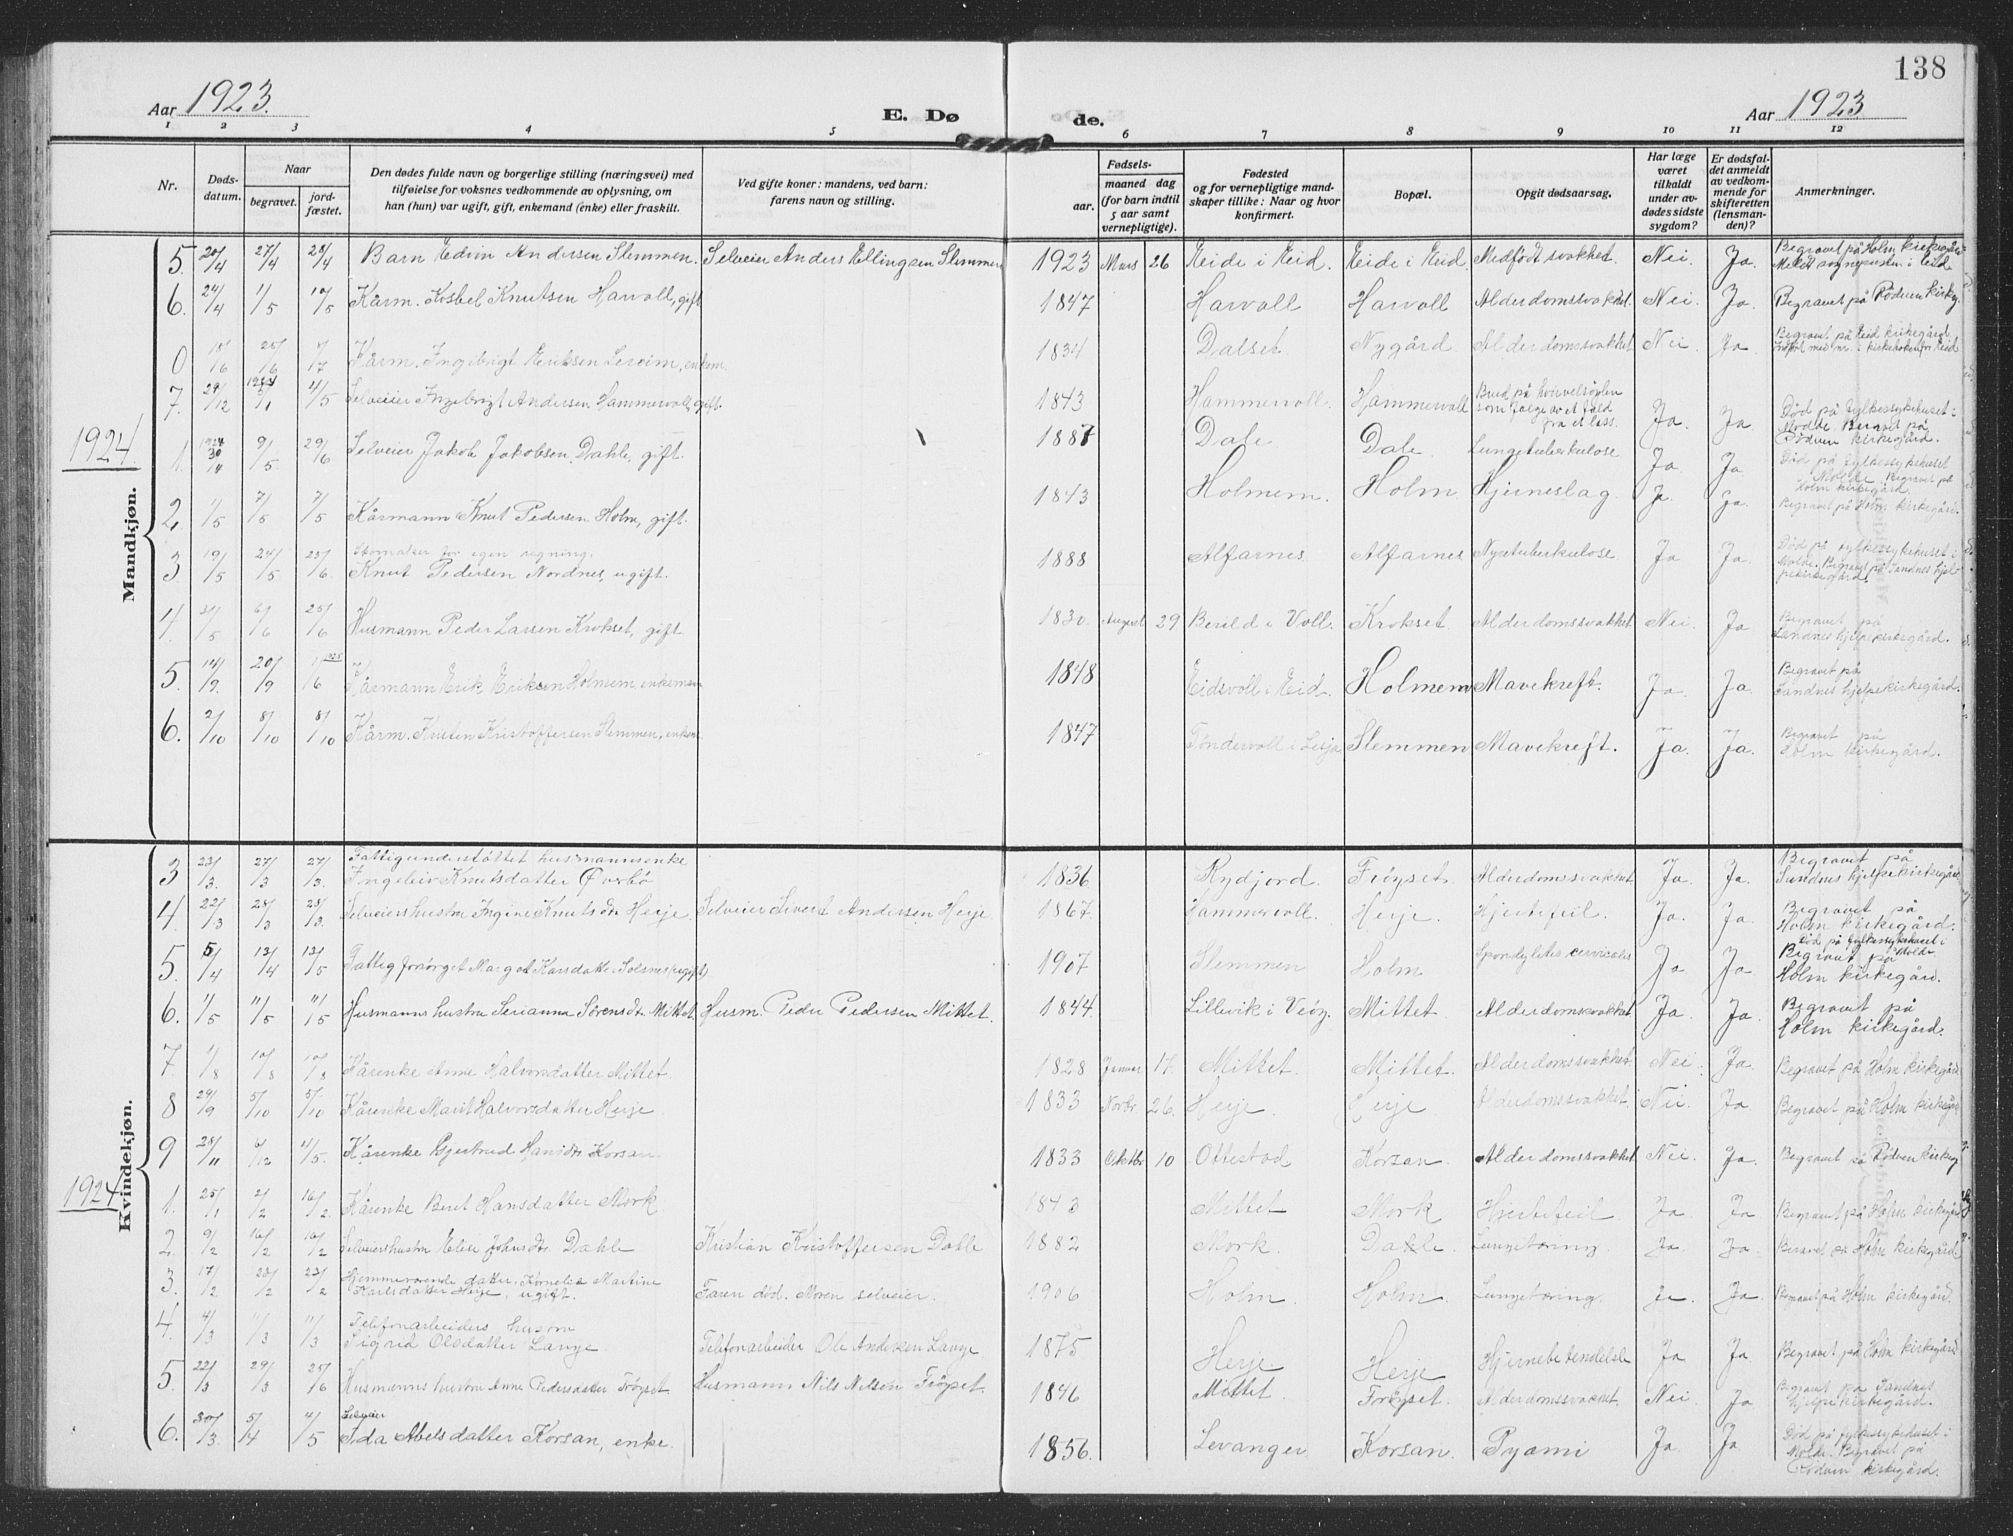 138
Aar 1923.
E. Dø
de.
Aar 1923
1 2 3 4 5 6 7 8 9 10 11 12
Nr.
Døds-
datum.
Naar
begravet.
jord-
fæstet.
Den dødes fulde navn og borgerlige stilling (næringsvei) med
tilføielse for voksnes vedkommende av oplysning, om
han (hun) var ugift, gift, enkemand (enke) eller fraskilt.
Ved gifte koner: mandens, ved barn:
farens navn og stilling.
Fødsels-
aar.
maaned dag
(for barn indtil
5 aar samt
vernepligtige).
Fødested
og for vernepligtige mand-
skaper tillike: Naar og hvor
konfirmert.
Bopæl.
Opgit dødsaarsag.
Har læge
været
tilkaldt
under av-
dødes sidste
sygdom?
Er dødsfal-
det anmeldt
av vedkom-
mende for
skifteretten
(lensman-
den)?
Anmerkninger.
Mandkjøn.
5. 20/4 27/4 28/4 Barn Edvin Andersen Slemmen. Selveier Anders Ellingsen Slemmen 1923 Mars 26 Eide i Eid. Eide i Eid. Medfødt svakhet. Nei. Ja. Begravet på Holm kirkegård
6. 24/4 1/5 10/5 Kårm. Kosbel Knutsen Harvoll, gift 1847 Harvoll Harvoll Alderdomssvakhet. Nei. Ja. Begravet på Rødven kirkeg.
0 18/6 25/6 Kårm. Ingebrigt Eriksen Lereim, enkem. 1834 Dalset Nygård Alderdomssvakhet Nei. Ja Begravet på Eid kirkegård
7. 29/12 4/5 Selveier Ingebrigt Andersen Hammervoll, gift. 1843 Hammervoll. Hammervoll Brud på
som følge av et fald
fra et lass. Ja. Ja Død på fylkessykehuset i
Molde. Begravet på
Rødven kirkegård.
1924
1. 1924 30/4 9/5 29/6 Selveier Jakob Jakobsen Dahle, gift. 1887 Dale Dale. Lungetuberkulose Ja Ja Død på fylkessykehuset
Molde. Begravet på
Holm kirkegård.
2. 1/5 7/5 7/5 Kårmann Knut Pedersen Holm, gift. 1843 Holmem. Holm Hjerneslag. Ja. Ja. Begravet på Holm kirkegård.
3 19/5 24/5 Skomaker for egen regning.
Knut Pedersen Nordnes, ugift. 1888 Alfarnes Alfarnes Nyretuberkulose Ja Ja Død på fylkessykehuset i
Molde. Begravet på Sandnes hjel-
pekirkegård.
4. 31/5 6/6 25/6 Husmann Peder Larsen Krokset, gift. 1830. August 29 Berild i Voll. Krokset Alderdomssvakhet Nei. Ja Begravet på
Sandnes hjelpekirkegård.
5. 14/9. 20/9 1/6 1925 Kårmann Erik Eriksen Holmem, enkemann 1848 Eidsvoll i Eid. Holmem Mavekreft. Ja. Ja. Begravet på
Sandnes hjelpekirkegård.
6. 2/10 8/10 8/10 Kårm. Kristen Kristoffersen Slemmen, enkem. 1847 Tøndervoll i Lesja Slemmen Mavekreft. Ja. Ja. Begravet på
Holm kirkegård.
Kvindekjøn.
3 23/3. 27/3 27/3. Fattigunderstøttet husmannsenke
Ingebor Knutsdatter Øverbø 1836. Rydjord. Frøyset. Alderdomssvakhet Ja. Ja. Begravet på
Sandnes hjelpekirkegård.
4. 22/3 28/3 28/3. Selveiershustru Ingine Knutsdtr Herje Selveier Sivert Andersen Herje 1867. Hammervoll. Herje. Hjertefeil. Ja. Ja. Begravet på
Holm kirkegård.
5. 5/4 13/4 13/5 Fattigforsørget Margot Larsdatter Solsnes (ugift) 1907 Slemmen Holm Spondylitis cervicalis Ja Ja Død på fylkessykehuset i
Molde
Begravet på
Holm kirkegård.
6. 1/5 11/5 11/5 Husmannshustru Serianna Sörensdtr Mittet. Husm. Peder Pedersen Mittet. 1844. Lillevik i Veøy. Mittet. Alderdomssvakhet Ja. Ja. Begravet på
Holm kirkegård.
7 1/8 10/8 10/8 Kårenke Anne Halvorsdatter Mittet. 1828 Januar 17. Mittet. Mittet. Alderdomssvakhet. Nei. Ja. Begravet på Holm kirkegård
8 29/9 5/10 5/10 Kårenke Marit Halvorsdatter Herje 1833 Novbr 26. Herje. Herje Alderdomssvakhet. Nei. Ja Begravet på Holm kirkegård
9 28/11 6/12 4/5. Kårenke Gjertrud Hansdtr Korsan. 1833 Oktbr 10 Ottestad Korsan. Alderdomssvakhet Nei. Ja. Begravet på Rødven kirkeg.
1924
1. 25/1 2/2 16/2. Kårenke Beret Hansdatter Mork 1843 Mittet Mork Hjertefeil Ja. Ja Begravet på Holm kirkegård
2. 9/2 16/2 16/2 Selveiershustru Elise Johnsdtr Dahle Kristian Kristoffersen Dahle 1882 Mork Dahle. Lungetæring. Ja. Ja. Begravet på Holm kirkegård
3. 17/2 23/2 23/2 Hjemmeværende datter, Kornelia Martine
Karlsdatter Herje, ugift. Faren død. Moren selveier. 1906 Holm. Holm. Lungetæring. Ja. Ja. Begravet på Holm kirkegård.
4. 4/3 11/3 11/3 Telefonarbeiders hustru
Sigrid Olsdatter Lange. Telefonarbeider Ole Andersen Lange 1875 Herje Herje Hjernebetendelse Ja Ja. Begravet på Holm kirkegård
5. 22/3 29/3 25/6 Husmannshustru Anne Pedersdatter Frøyset Husmann Nils Nilsen Frøyset. 1846 Mittet. Frøyset. Alderdomssvakhet. Nei. Ja Begravet på Sandnes
hjelpekirkegård.
6. 30/3. 5/4 4/5 Selveier
Ida Abelsdatter Korsan, enke. 1856. Levanger Korsan. Pyæmi Ja. Ja Død på fylkessykehuset i
Molde. Begravet på
Rødven kirkegård.